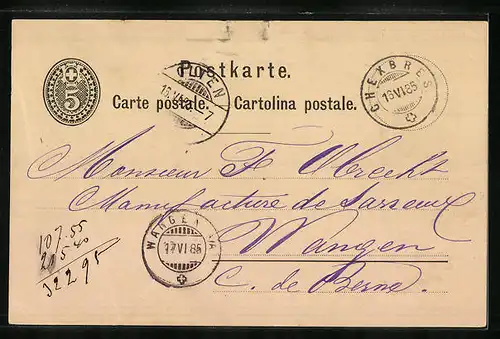 Postkarte.
Carte postale. Cartolina postale.
5
CHEXBRES
16 VI 85
Monsieur F Obrecht
Manufacture de
Wangen
C. de Berne.
WANGEN
17 VI 85
107.55
215.40
322 95